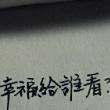 幸福給誰看?